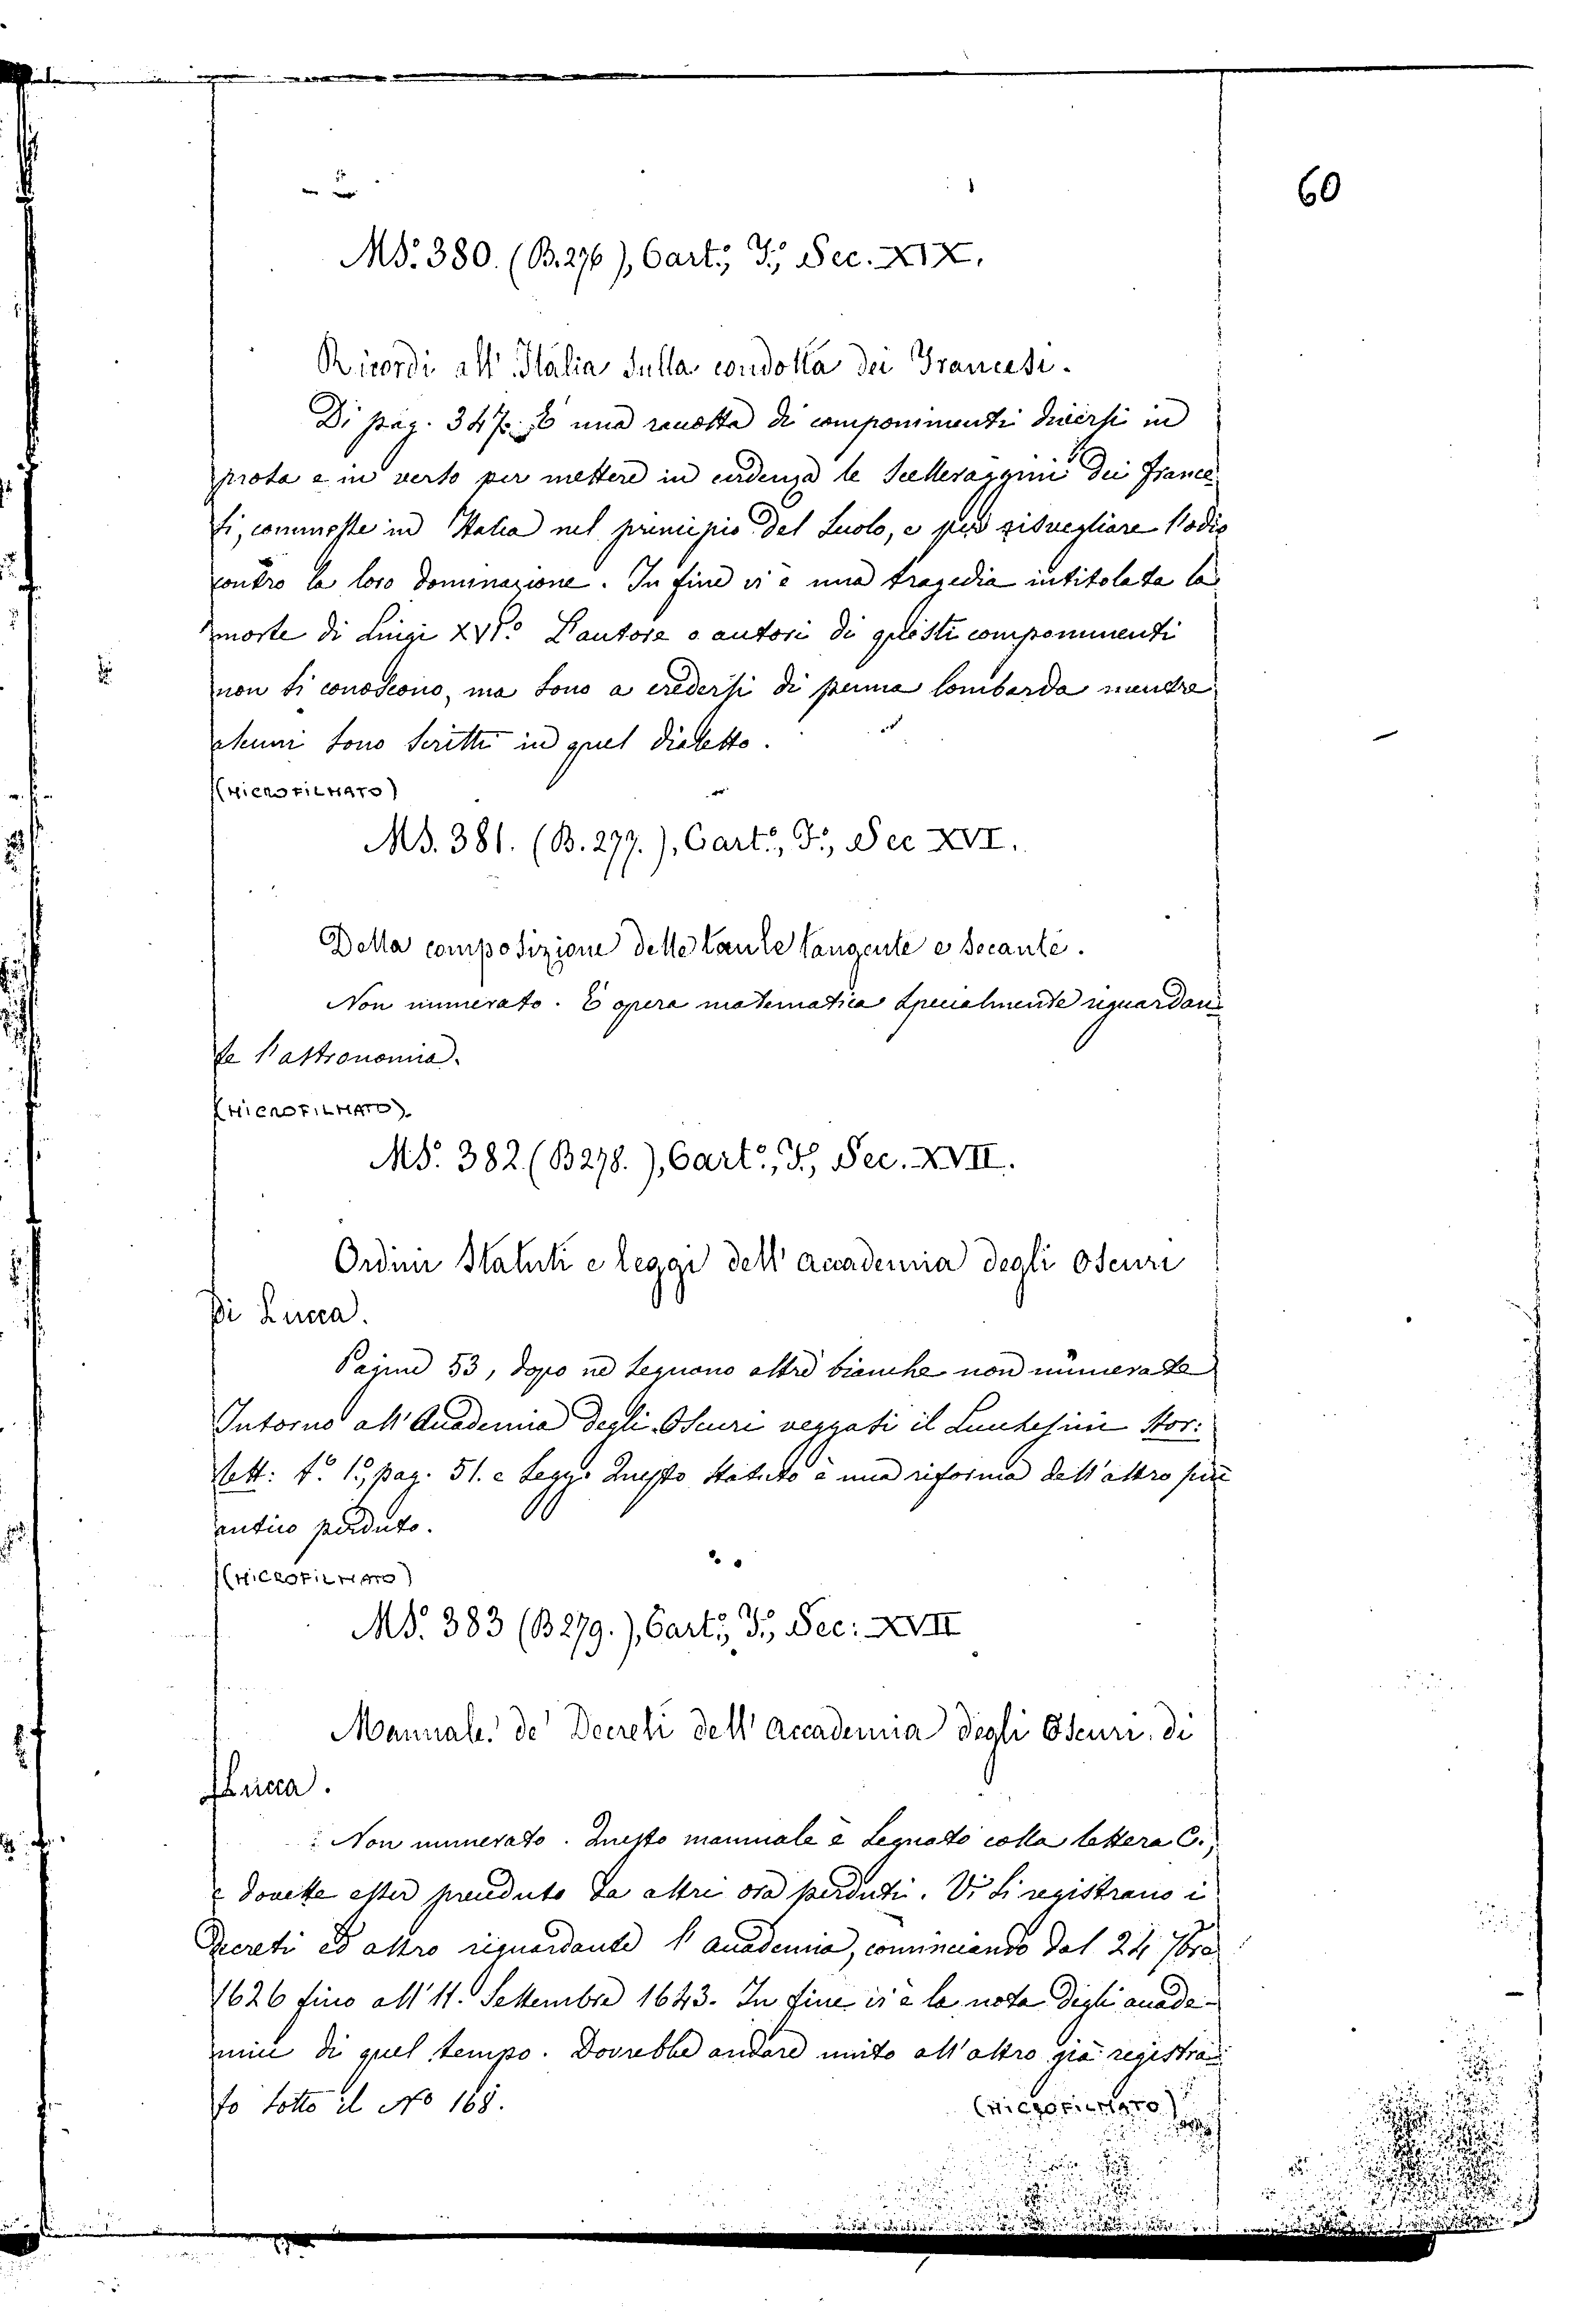 60
MS. 380. (B. 276), Cart.º, F.º, Sec. XIX.
Ricordi all' Italia sulla condotta dei Francesi.
Di pag. 347. È una raccolta di componimenti diversi in
prosa e in verso per mettere in evidenza le scelleraggini dei france
si, commesse in Italia nel principio del secolo, e per risvegliare l'odio
contro la loro dominazione. In fine vi è una tragedia intitolata la
morte di Luigi XVI.º L'autore o autori di questi componimenti
non si conoscono, ma sono a credersi di penna lombarda mentre
alcuni sono scritti in quel dialetto.
(MICROFILMATO)
MS. 381. (B. 277.), Cart.º, F.º, Sec XVI.
Della composizione delle taule tangente e secante.
Non numerato. È opera matematica specialmente riguardan
te l'astronomia.
(MICROFILMATO).
MS. 382 (B 278.), Cart.º, F.º, Sec. XVII.
Ordini Statuti e leggi dell' accademia degli Oscuri
di Lucca.
Pagine 53, dopo ne seguono altre bianche non numerate
Intorno all'Accademia degli Oscuri veggasi il Lucchesini Stor:
lett: t.º 1.º, pag. 51. e segg. Questo statuto è una riforma dell'altro più
antico perduto.
(MICROFILMATO)
MS. 383 (B 279.), Cart.º, F.º, Sec: XVII
Mannale de' Decreti dell' accademia degli Oscuri di
Lucca.
Non numerato. Questo mannale è segnato colla lettera C.,
e dovette esser preceduto da altri ora perduti. Vi si registrano i
Decreti ed altro riguardante l'accademia, cominciando dal 24 7bre
1626 fino all' 11. Settembre 1643. In fine vi è la nota degli accade-
mici di quel tempo. Dovrebbe andare unito all'altro già registra
to sotto il No 168.
(MICROFILMATO)